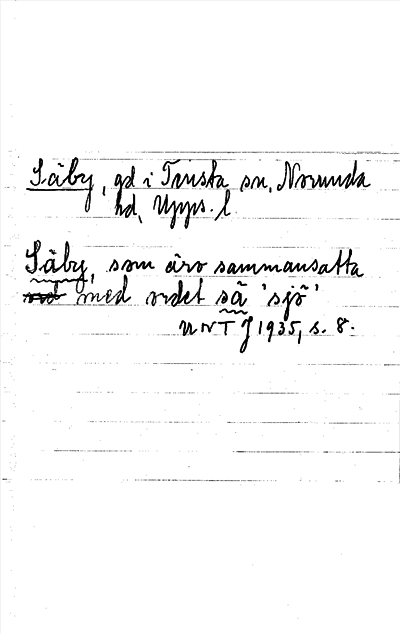 Säby, gd i Tensta sn, Norunda
hd, Upps. l.
Säby, som äro sammansatta
med ordet sä 'sjö'
UNTJ 1935, s. 8.